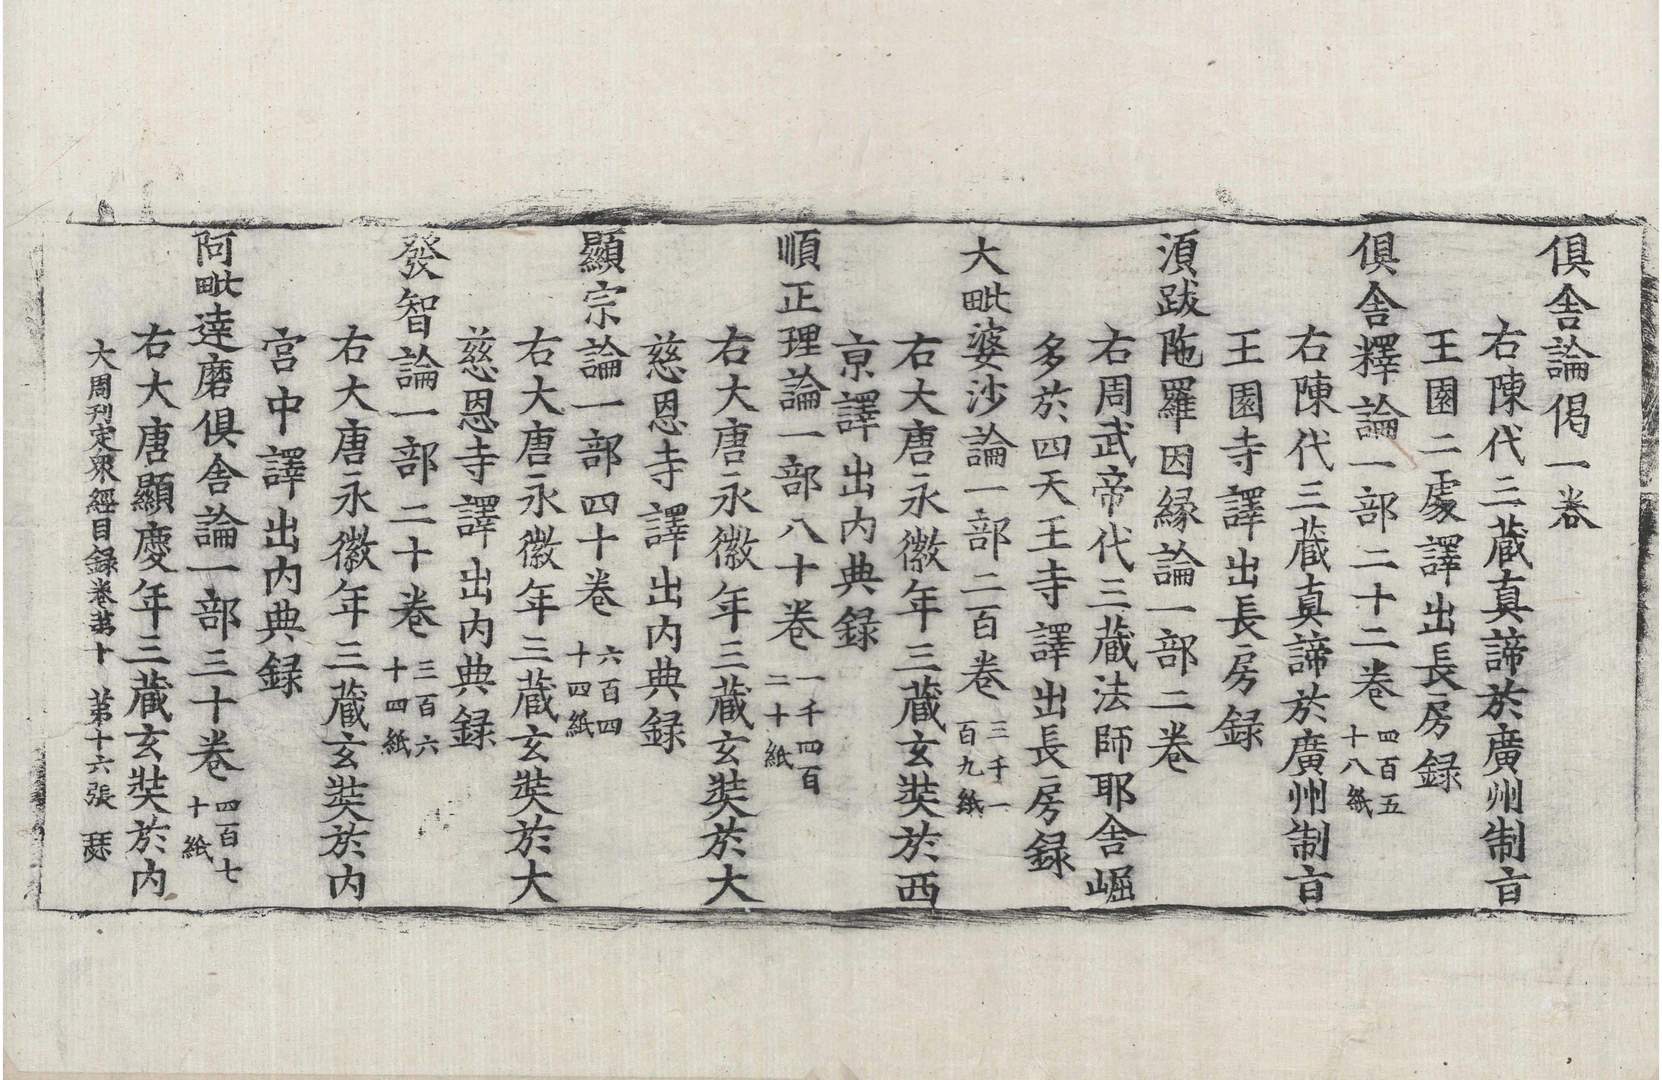 俱舍論偈一卷
右陳代三藏真諦於廣州制㫖
王園二處譯出長房録
俱舍釋論一部二十二卷 四百五十八紙
右陳代三藏真諦於廣州制㫖
王園寺譯出長房録
湏跋陁羅因縁論一部二卷
右周武帝代三藏法師耶舍崛
多於四天王寺譯出長房録
大毗婆沙論一部二百卷 三千一百九紙
右大唐永徽年三藏玄奘於西
亰譯出内典録
順正理論一部八十卷 一千四百二十紙
右大唐永徽年三藏玄奘於大
慈恩寺譯出内典録
顯宗論一部四十卷 六百四十四紙
右大唐永徽年三藏玄奘於大
慈恩寺譯出内典録
發智論一部二十卷 三百六十四紙
右大唐永徽年三藏玄奘於内
宫中譯出内典録
阿毗達磨俱舍論一部三十卷 四百七十紙
右大唐顯慶年三藏玄奘於内
大周刊定衆經目録卷第十 第十六張 瑟